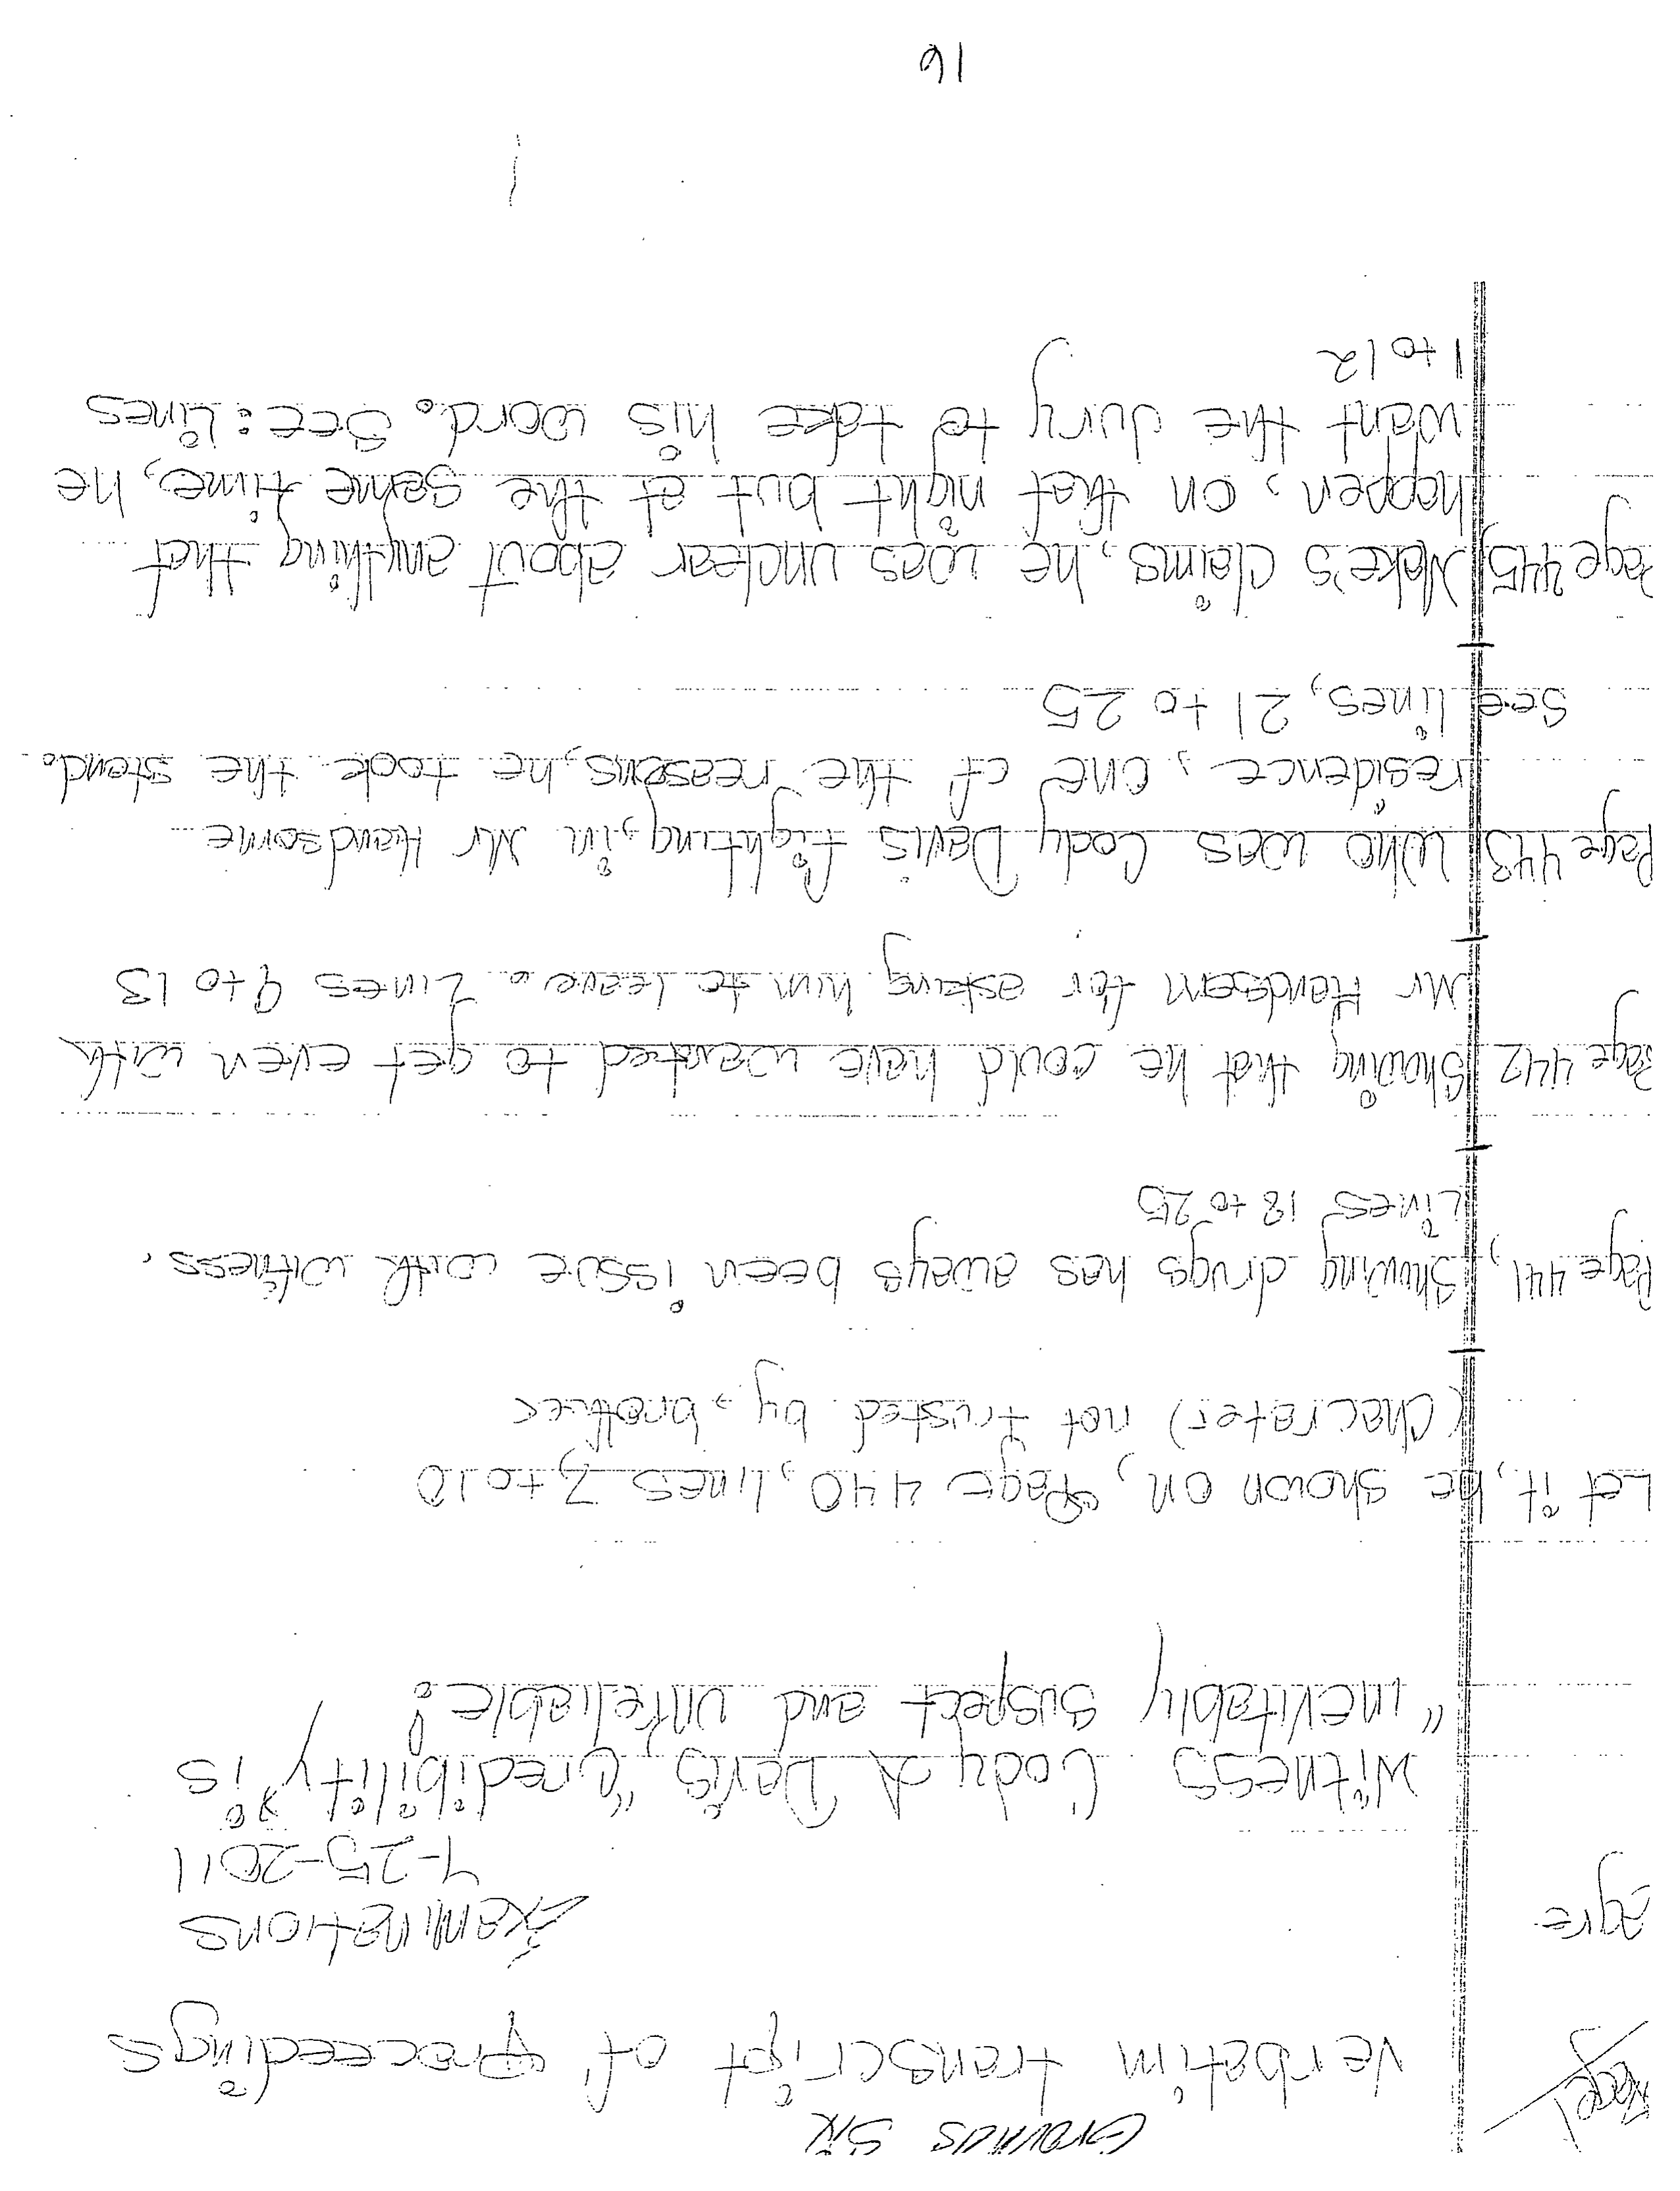 Grounds Six
Verbatim transcript of proceedings
Examinations
4-25-2011
Witness Cody A Davis "Credibility is
"inevitably suspect and unreliable:
Let it, be shown on, Page 440, lines 7, to 10
(Chacrater) not trusted by, brother
Page 441, Showing drugs has aways been issue with witness.
Lines 18 to 25
Page 442 Showing that he could have wanted to get even with
Mr Handsom for asking him to leave. Lines 9 to 13
Page 443 Who was Cody Davis fighting, in Mr Handsome
residence, one of the reasons, he took the stand.
See lines, 21 to 25
Page 445 Make's claims, he was unclear about anything that
happen, on that night but at the same time, he
want the Jury to take his word. See: Lines
1 to 12
16